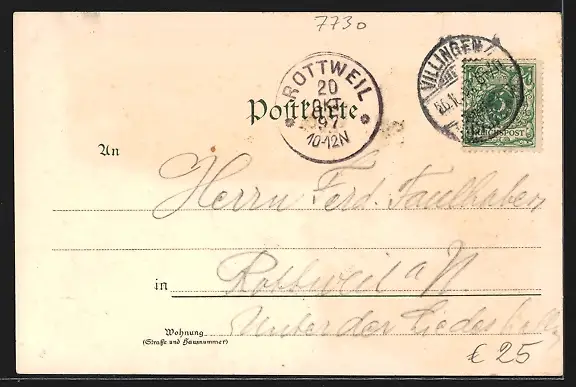 7730
VILLINGEN
REICHSPOST
ROTTWEIL
20
OKT
97
10-12N
Postkarte
An
Herrn Ferd. Faulhaber
in
Rottweil a/N.
Wohnung
(Straße und Hausnummer)
Unter der
€ 25